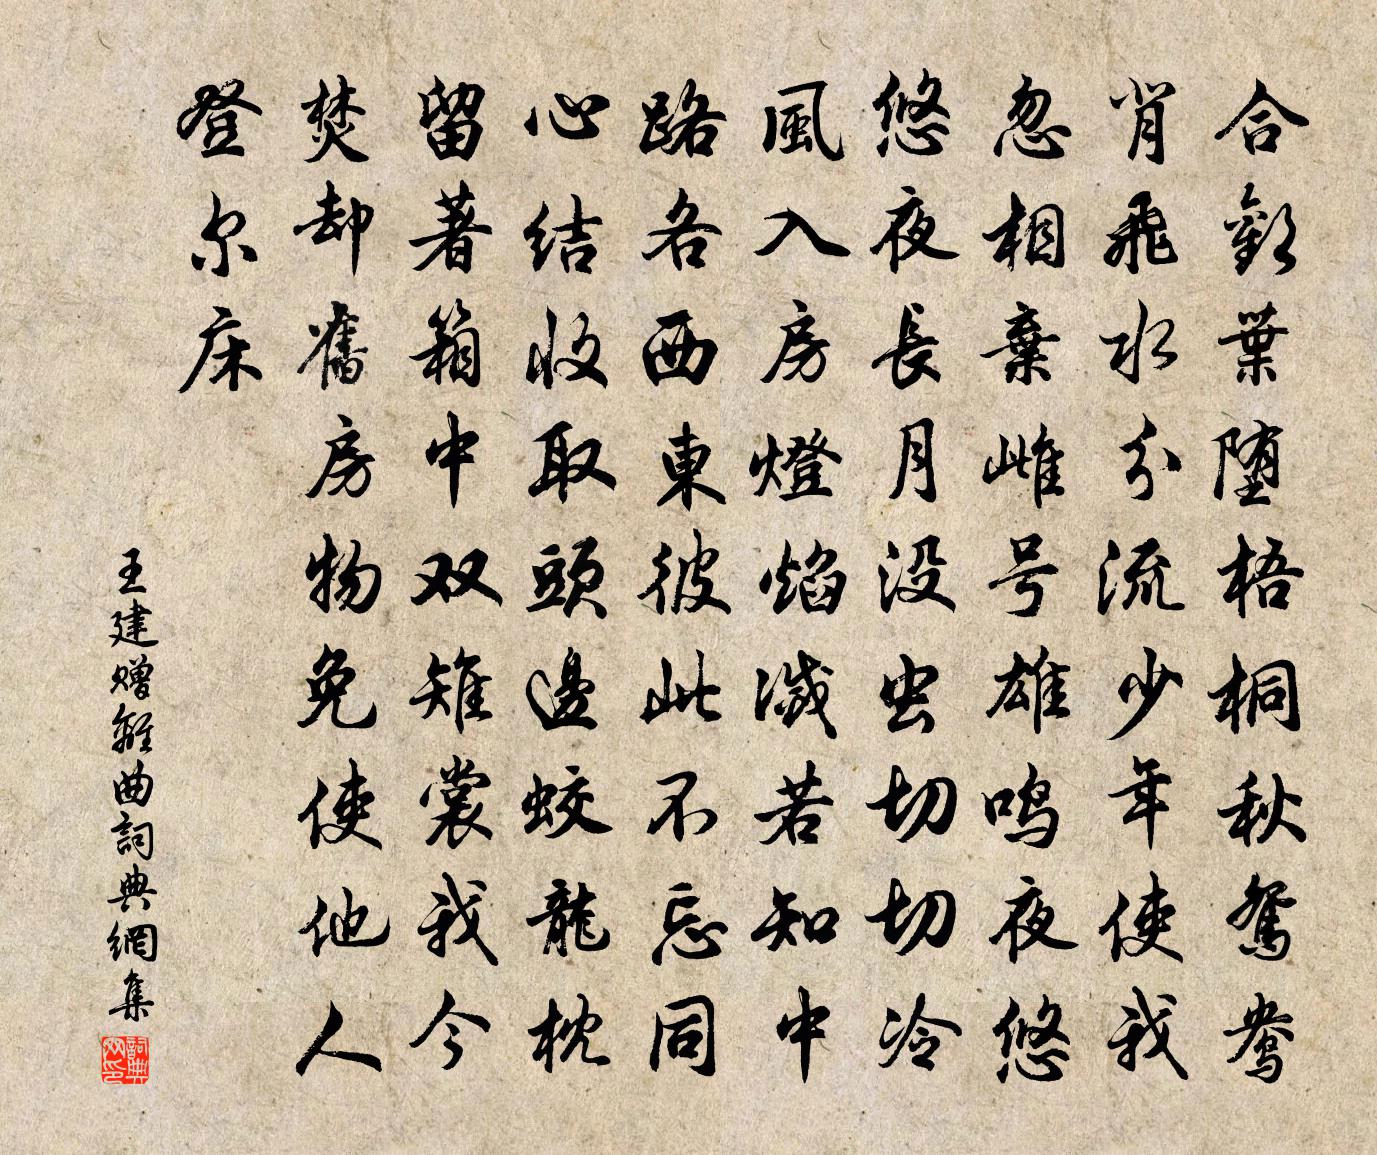 合歡葉墮梧桐秋鴛鴦
背飛水分流少年使我
忽相棄雌号雄鸣夜悠
悠夜長月没虫切切冷
風入房燈焰滅若知中
路各西東彼此不忘同
心结收取頭邊蛟龍枕
留著箱中双雉裳我今
焚却舊房物免使他人
登尔床
王建赠離曲詞典網集
詞典
网印